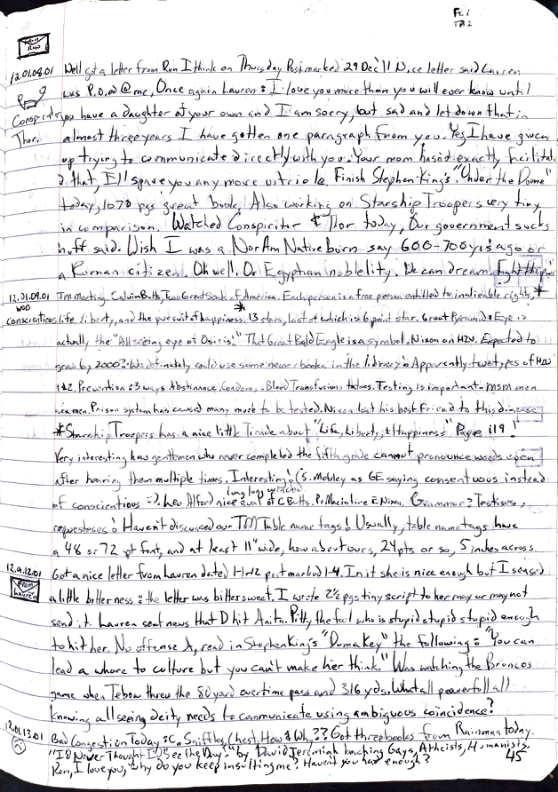 Fc 1
TA 2
FROM RON
12.01.08.01 Well got a letter from Ron I think on Thursday Postmarked 29 Dec 11 Nice letter said Lauren
was P.O.ed @ me, Once again Lauren: I love you more than you will ever know until
Conspirator you have a daughter of your own and I am sorry, but sad and let down that in
Thor almost three years I have gotten one paragraph from you. Yes I have given
up trying to communicate directly with you. Your mom hasn't exactly facilitate
d that, I'll spare you any more vitriole. Finish Stephen King's "Under the Dome"
today, 1070 pgs great book. Also working on Starship Troopers very tiny
in comparison. Watched Conspirator & Thor today, Our government sucks
nuff said. Wish I was a NorAm Native born say 600-700 yrs ago or
a Roman citizen. Oh well. Or Egyptian nobility. We can dream
12.01.09.01 TM meeting. Calvin Butts, Two Great Seals of America. Each person is a free person entitled to inalienable rights, *
WOD
conscientious life, liberty, and the pursuit of happiness. 13 stars, last of which is 6 point star. Great Pyramid & Eye is
actually the "All seeing eye of Osiris." That Great Bald Eagle is a symbol. Nixon on HIV. Expected to
grow by 2000? Ultimately could use some newer books in the library. Apparently two types of HIV
1 & 2. Prevention 3 ways Abstinance, Condoms, Blood Transfusions. Testing is important - MSM men
sex men. Prison system has caused many much to be tested. Nixon lost his best Friend to this disease
*Starship Troopers has a nice little Tirade about "Life, Liberty, & Happiness" Page 119!
Very interesting how gentlemen who never completed the fifth grade cannot pronounce words even
after hearing them multiple times. Interesting! Mobley as GE saying consentuous instead
of conscientious :). Lev Alford nine eval of C Butts. P. MacIntire E Nixon. Grammar? Testises,
requesteses. Haven't discussed our TM Table name tags! Usually, table name tags have
a 48 or 72 pt font, and at least 11" wide, how about ours, 24 pts or so, 5 inches across.
12.01.12.01 Got a nice letter from Lauren dated 1-1-12 postmarked 1-4. In it she is nice enough but I sensed
FROM Lauren a little bitterness: the letter was bittersweet. I wrote 2½ pgs tiny script to her may or may not
send it. Lauren sent news that D hit Anita. Pity the fool who is stupid stupid stupid enough
to hit her. No offense A, read in Stephen King's "Duma Key" the following: "You can
lead a whore to culture but you can't make her think" Was watching the Broncos
game when Tebow threw the 80 yard overtime pass and 316 yds. What all powerful all
knowing all seeing deity needs to communicate using ambiguous coincidence?
12.01.13.01 Bad Congestion Today :C. Sniffley Chest How & Why?? Got three books from Rainman today.
"I'd Never Thought I'd See the Day!" by David Jeremiah bashing Gays, Atheists, Humanists.
Ron, I love you, why do you keep insulting me? Haven't you had enough? 45